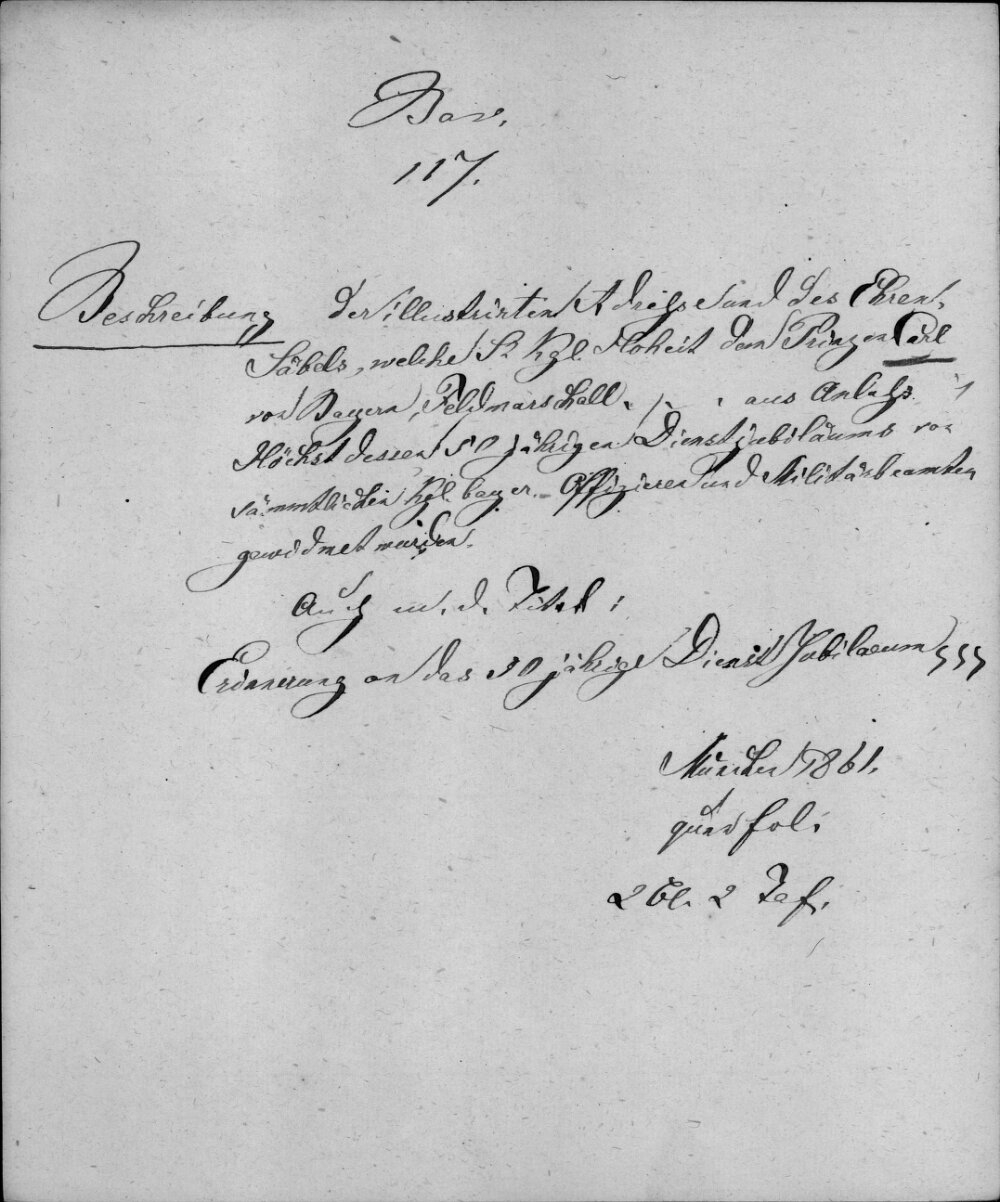 Bav.
117.
Beschreibung der illustrirten Adresse und des Ehren-
Säbels, welche Sr Kgl Hoheit dem Prinzen Carl
von Bayern, Feldmarschall . / . . aus Anlaß
Höchst dessen 50 jährigen Dienstjubiläums von
sämmtlichen Kgl. bayer. Offizieren und Militärbeamten
gewidmet wurden.
Auch m. d. Titel:
Erinnerung an das 50 jährige Dienst Jubilaeum
München 1861.
quer fol.
2 Bl. 2 Taf.